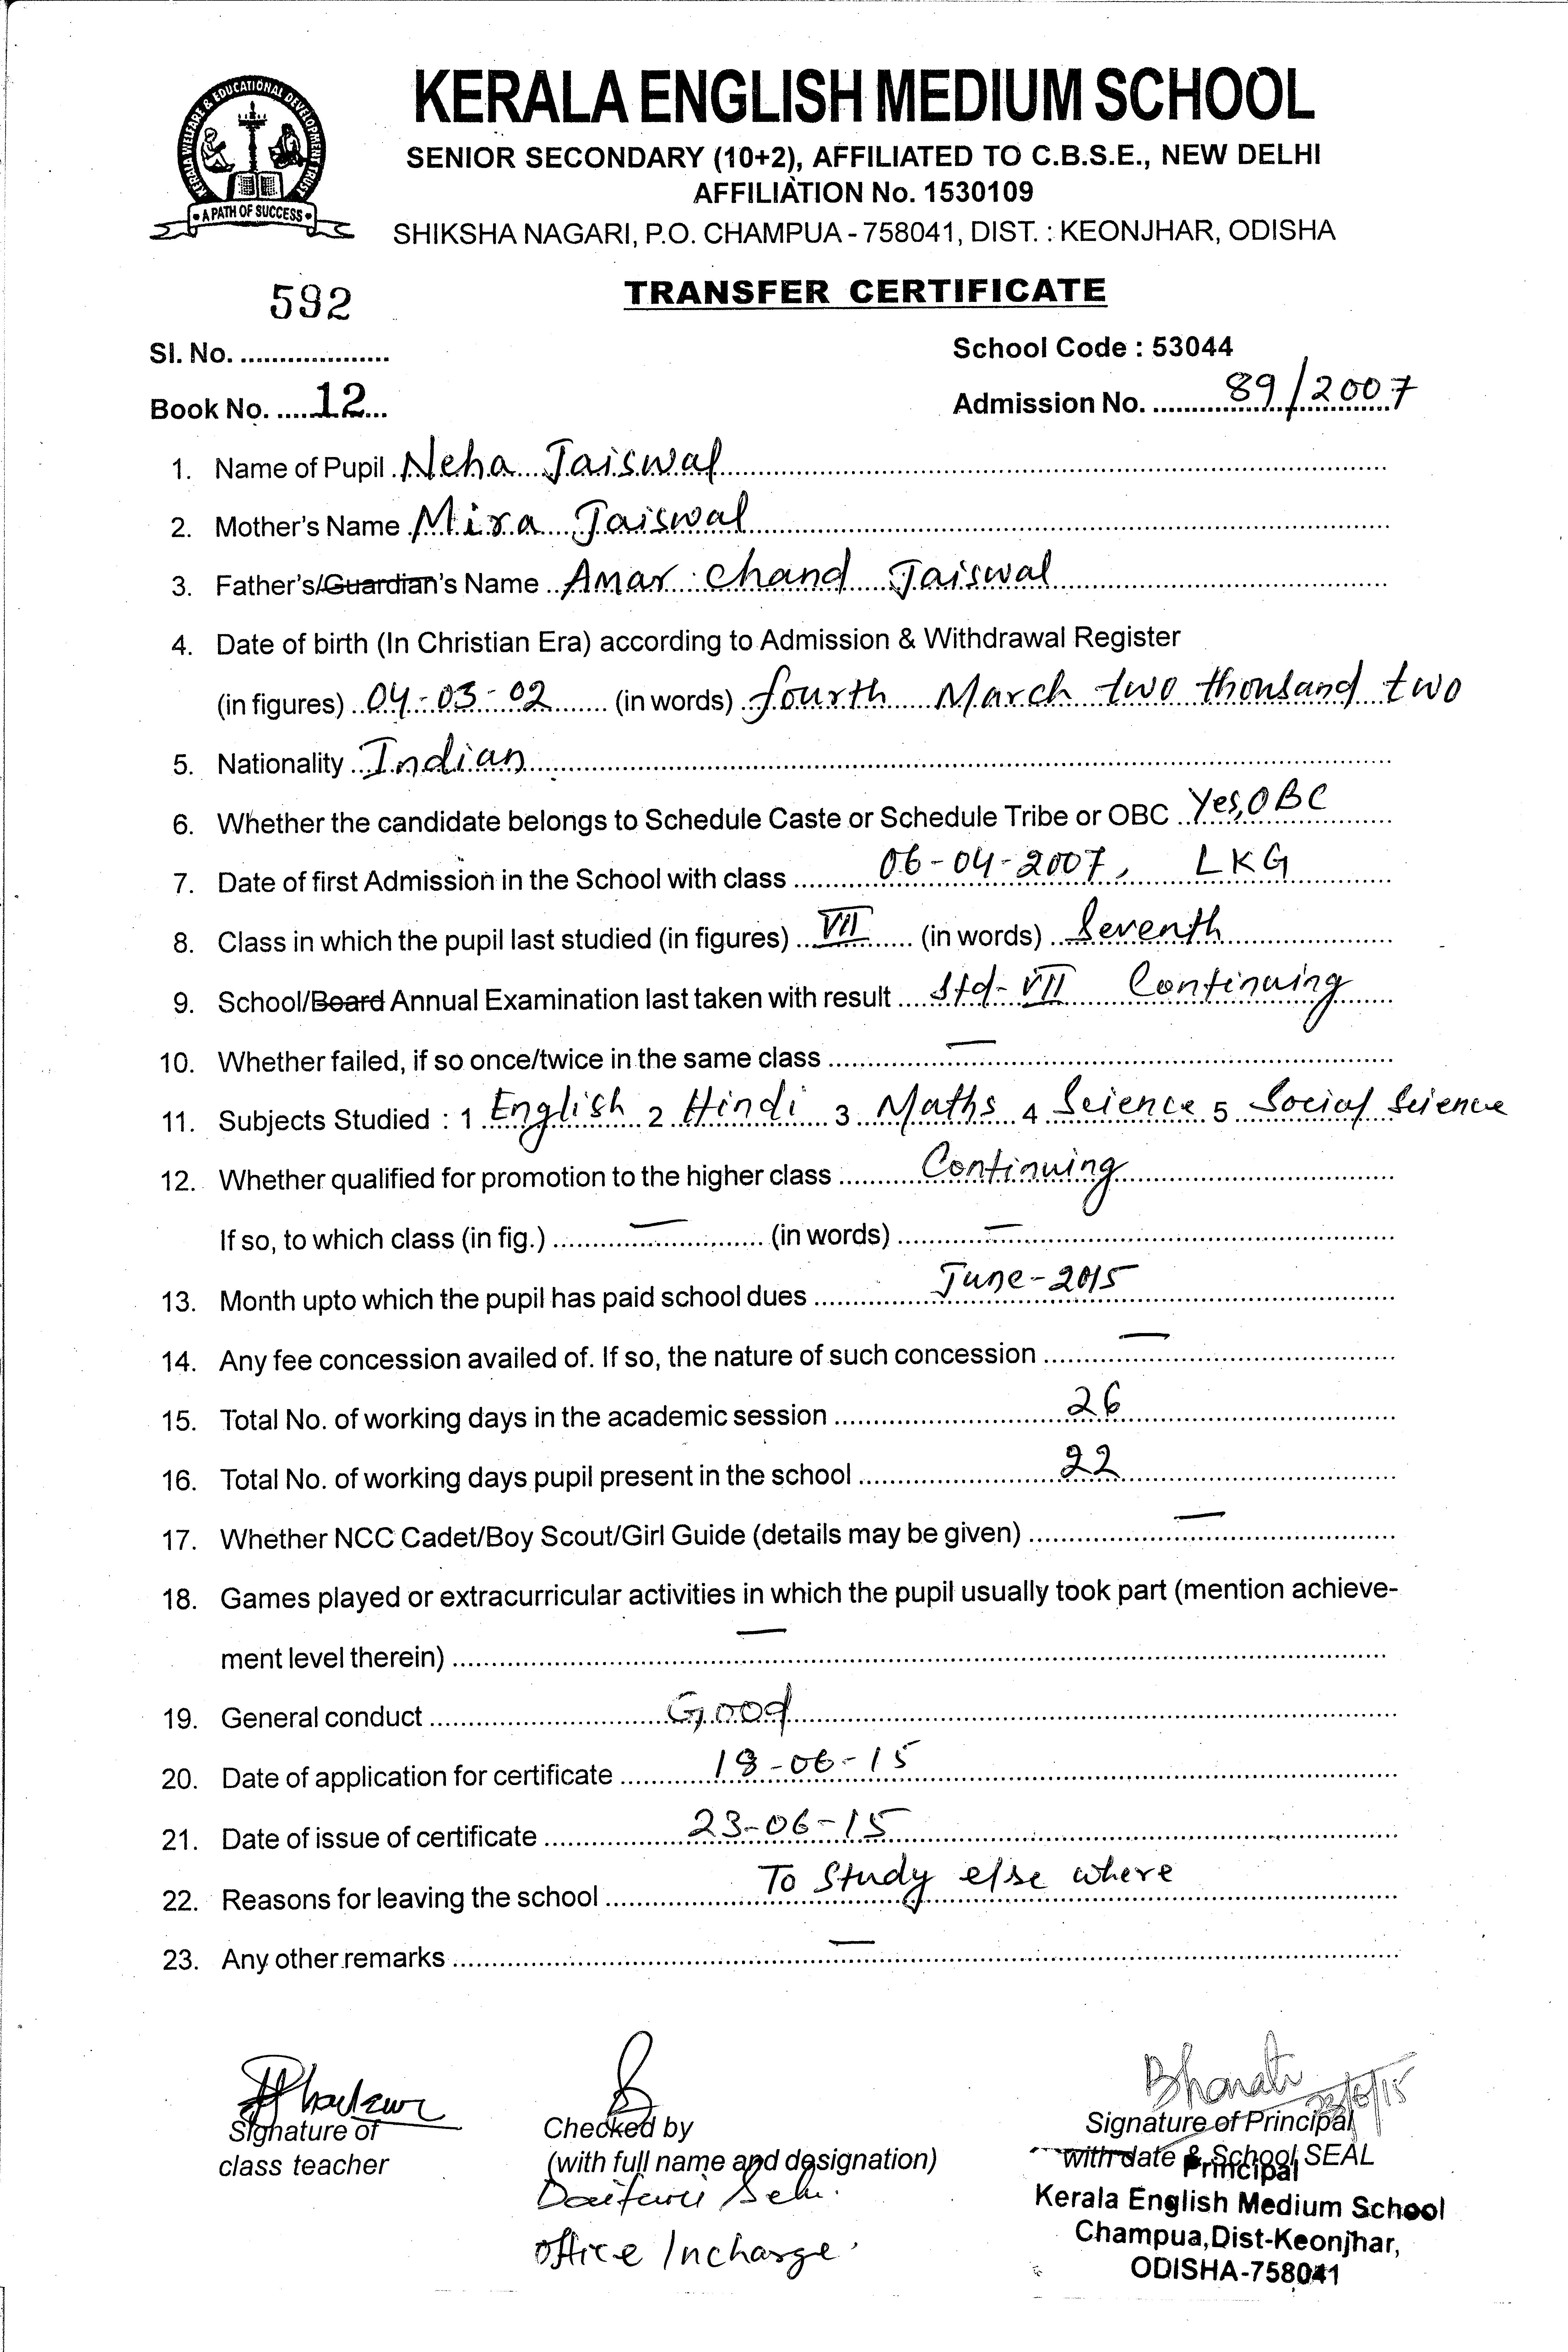 KERALA WELFARE & EDUCATIONAL DEVELOPMENT TRUST
• A PATH OF SUCCESS •
KERALA ENGLISH MEDIUM SCHOOL
SENIOR SECONDARY (10+2), AFFILIATED TO C.B.S.E., NEW DELHI
AFFILIATION No. 1530109
SHIKSHA NAGARI, P.O. CHAMPUA - 758041, DIST. : KEONJHAR, ODISHA
592
TRANSFER CERTIFICATE
Sl. No. ....................
School Code : 53044
Book No. 12
Admission No. 89/2007
1. Name of Pupil Neha Jaiswal
2. Mother's Name Mira Jaiswal
3. Father's/Guardian's Name Amar Chand Jaiswal
4. Date of birth (In Christian Era) according to Admission & Withdrawal Register
(in figures) 04-03-02 (in words) fourth March two thousand two
5. Nationality Indian
6. Whether the candidate belongs to Schedule Caste or Schedule Tribe or OBC Yes, OBC
7. Date of first Admission in the School with class 06-04-2007, LKG
8. Class in which the pupil last studied (in figures) VII (in words) Seventh
9. School/Board Annual Examination last taken with result Std- VII Continuing
10. Whether failed, if so once/twice in the same class —
11. Subjects Studied : 1 English 2 Hindi 3 Maths 4 Science 5 Social Science
12. Whether qualified for promotion to the higher class Continuing
If so, to which class (in fig.) — (in words) —
13. Month upto which the pupil has paid school dues June-2015
14. Any fee concession availed of. If so, the nature of such concession —
15. Total No. of working days in the academic session 26
16. Total No. of working days pupil present in the school 22
17. Whether NCC Cadet/Boy Scout/Girl Guide (details may be given) —
18. Games played or extracurricular activities in which the pupil usually took part (mention achieve-
ment level therein) —
19. General conduct Good
20. Date of application for certificate 18-06-15
21. Date of issue of certificate 23-06-15
22. Reasons for leaving the school To Study else where
23. Any other remarks —
23/6/15
Signature of
class teacher
Checked by
(with full name and designation)
office Incharge
Signature of Principal
with date & School SEAL
Principal
Kerala English Medium School
Champua, Dist-Keonjhar,
ODISHA-758041